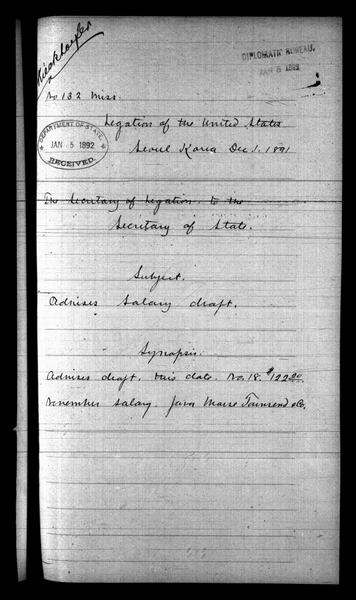 DIPLOMATIC BUREAU.
JAN 5 1892
No 132 Miss.
Legation of the United States
DEPARTMENT OF STATE
JAN 5 1892
RECEIVED.
Seoul Korea Dec 1. 1891
The Secretary of Legation. to the
Secretary of State.
Subject.
Advises Salary draft.
Synopsis.
Advises draft. this date. No. 18.
November Salary. favor Morse Townsend &Co.